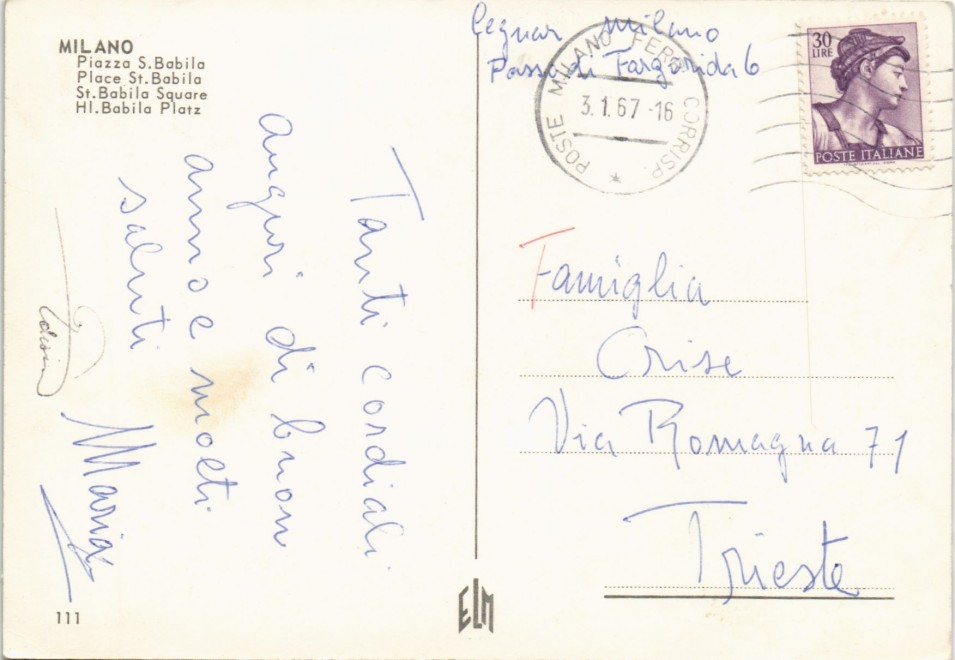 MILANO
Piazza S.Babila
Place St.Babila
St.Babila Square
Hl.Babila Platz
Tanti cordiali
auguri di buon
anno e molti
saluti
Maria
111
ELM
Milano
Pass. di 6
POSTE MILANO FERR. CORRISP.
3.1.67-16
30
LIRE
POSTE ITALIANE
Famiglia
Crise
Via Romagna 71
Trieste